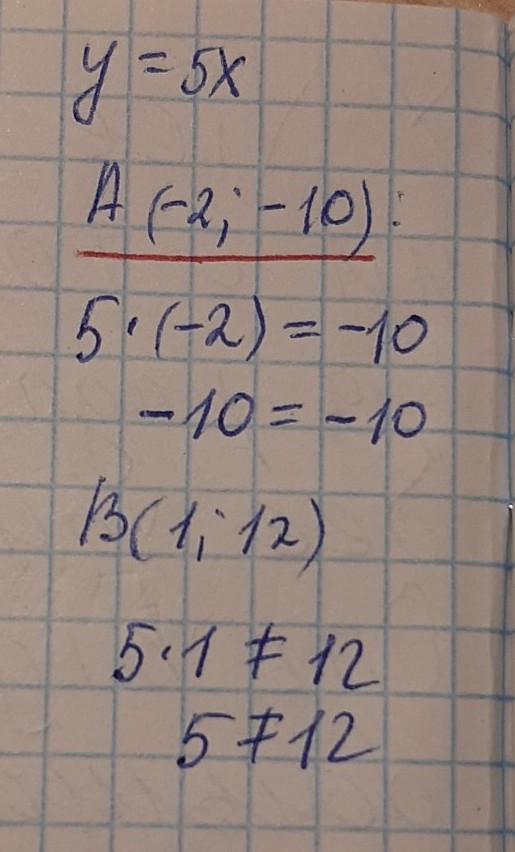 y = 5x
A (-2; -10):
5·(-2) = -10
-10 = -10
B(1; 12)
5·1 ≠ 12
5 ≠ 12